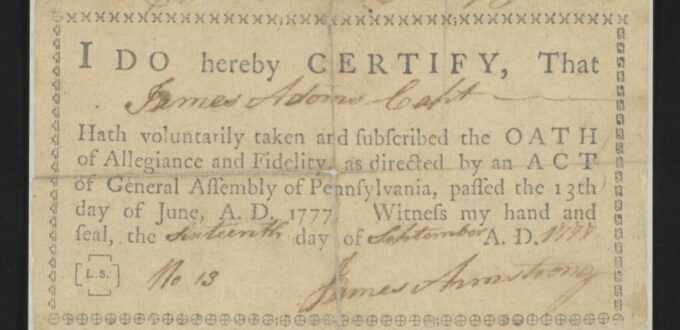 I DO hereby CERTIFY, That
James Adams Capt
Hath voluntarily taken and ſubſcribed the OATH
of Allegiance and Fidelity, as directed by an ACT
of General Aſſembly of Pennſylvania, paſſed the 13th
day of June, A. D. 1777. Witneſs my hand and
ſeal, the sixteenth day of September A. D. 1777
L. S. No 13 James Armstrong